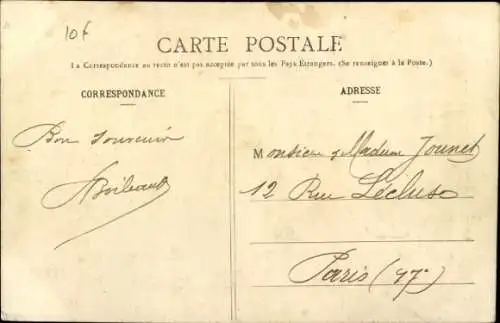 10f
CARTE POSTALE
La Correspondance au recto n'est pas acceptée par tous les Pays Etrangers. (Se renseigner à la Poste.)
CORRESPONDANCE
ADRESSE
Bon souvenir
ABoileault
Monsieur & Madame Jounet
12 Rue Lécluse
Paris (17e)